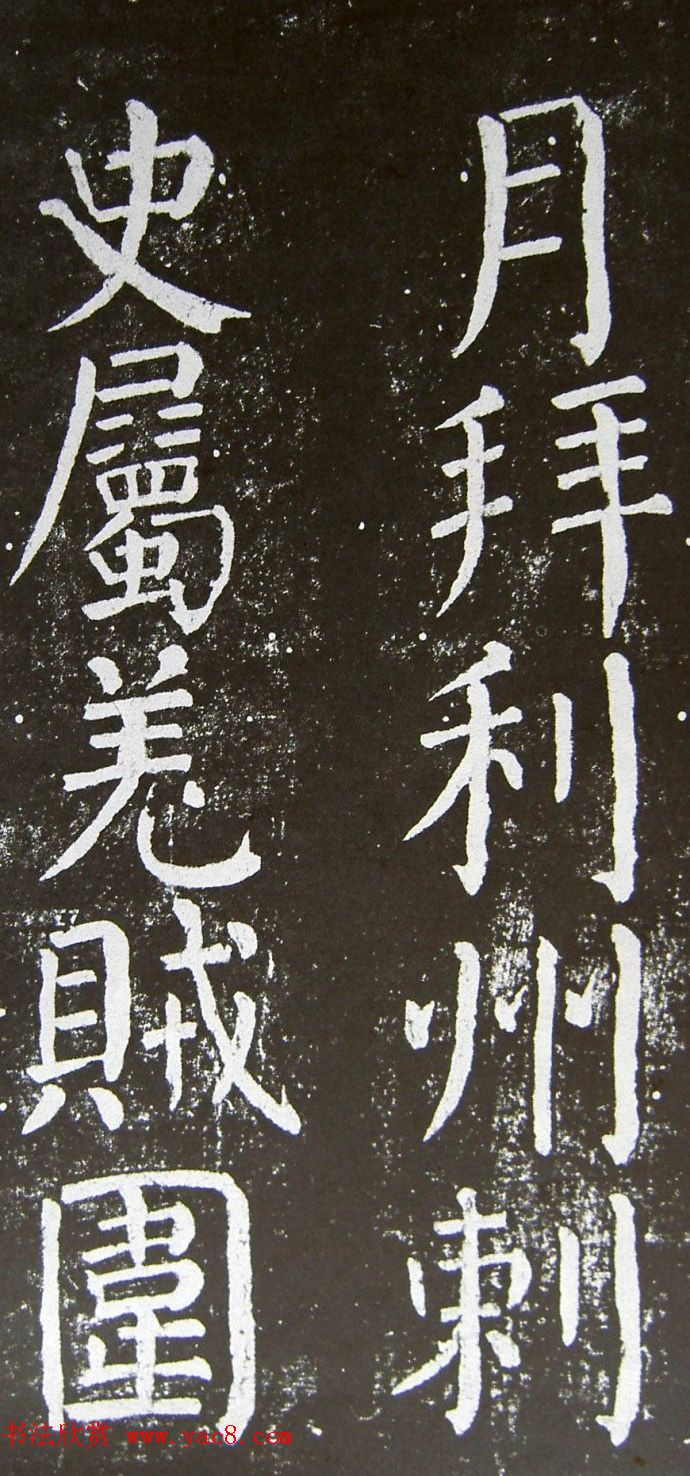 月拜利州刺
史屬羌賊圍
书法欣赏 www.yac8.com